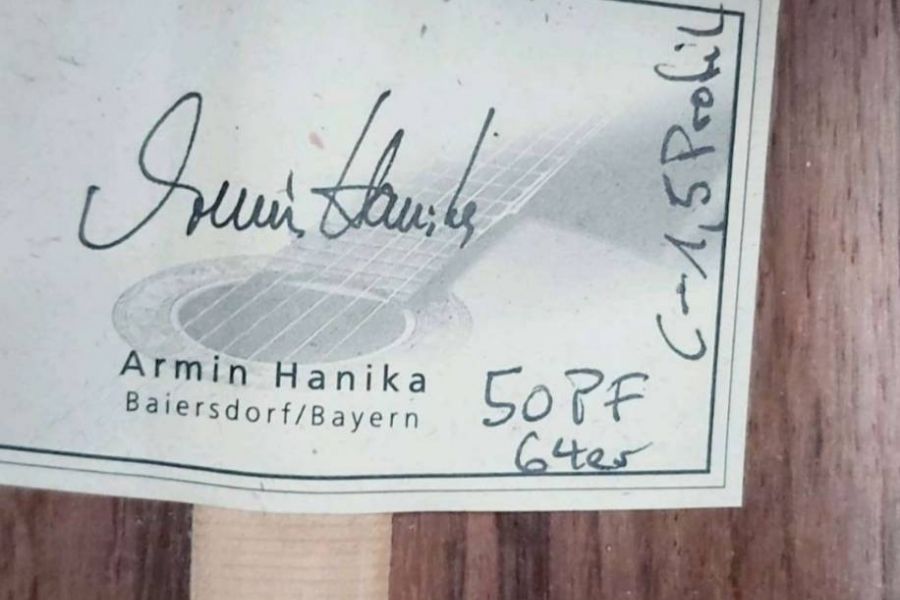 Armin Hanika
Armin Hanika
Baiersdorf/Bayern
50PF
64er
C-1,5 Profil